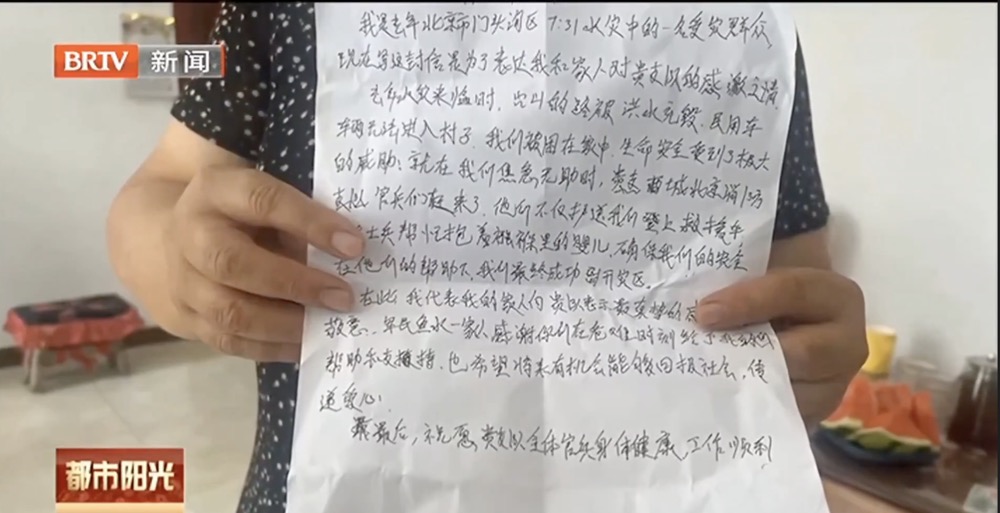 BRTV 新闻
我是去年北京市门头沟区7:31水灾中的一名受灾群众,
现在写这封信是为了表达我和家人对贵支队的感激之情
去年水灾来临时,出山的路被洪水充毁,民用车
辆无法进入村子,我们被困在家中,生命安全受到了极大
的威胁;就在我们焦急无助时,贵支
官兵们赶来了,他们不仅护送我们登上救援车
士兵帮忙抱着襁褓里的婴儿,确保我们的安全
在他们的帮助下,我们最终成功离开灾区。
在此,我代表我的家人向贵队表示最真挚的
军民鱼水一家人感谢你们在危难时刻给了
帮助和支持,也希望将来有机会能够回报社会,传
递爱心!
最后,祝愿贵支队全体官兵身体健康,工作顺利
都市阳光